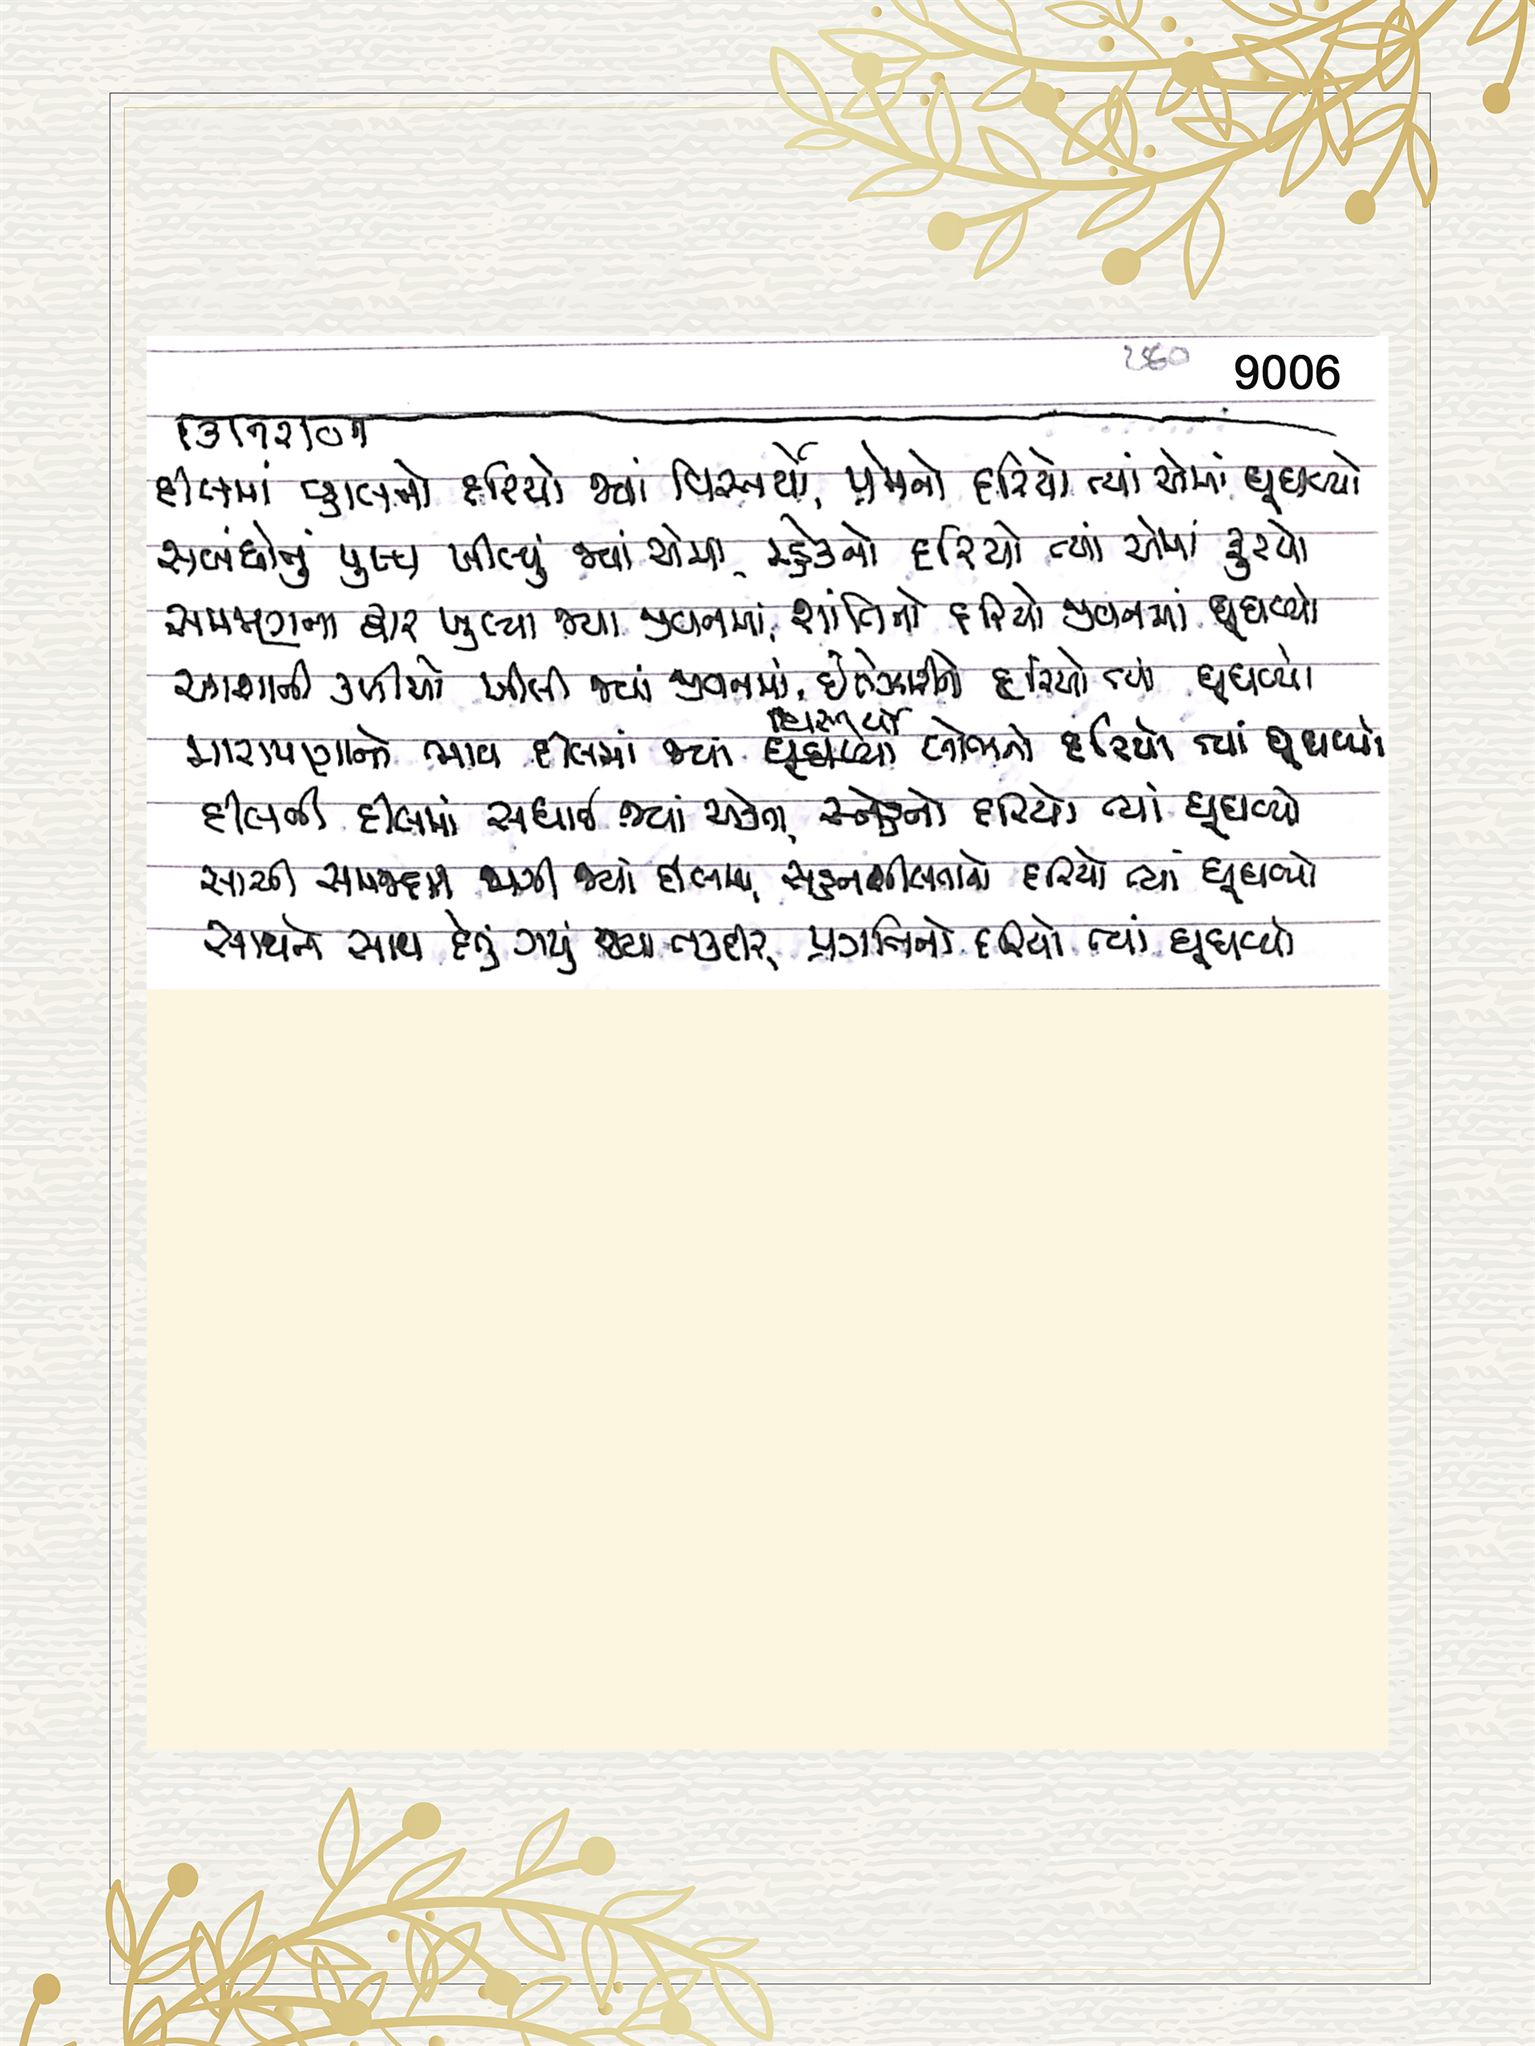 9006
૧૩/૧૨/૦૧
દીલમાં વ્હાલનો દરિયો જ્યાં વિસ્તર્યો, પ્રેમનો દરિયો ત્યાં એમાં ઘૂઘવ્યો
સબંધોનું પુષ્પ ખીલ્યું જ્યાં એમાં, મ્હેકનો દરિયો ત્યાં એમાં
સમજણના દ્વાર ખુલ્યા જ્યા જીવનમાં, શાંતિનો દરિયો જીવનમાં ઘૂઘવ્યો
આશાની કળીયો ખીલી જ્યાં જીવનમાં, દરિયો ત્યાં ઘૂઘવ્યો
વિસ્તર્યો
મારાપણાનો ભાવ દીલમાં જ્યાં ઘૂઘવ્યો દરિયો ત્યાં ઘૂઘવ્યો
દીલની દીલમાં સધાઈ જ્યાં એકતા, સ્નેહનો દરિયો ત્યાં ઘૂઘવ્યો
સાચી સમજદારી જાગી જ્યાં દીલમાં, સહનશીલતાનો દરિયો ત્યાં ઘૂઘવ્યો
સાથને સાથ દેતું ગયું જ્યા તકદીર, પ્રગતિનો દરિયો ત્યાં ઘૂઘવ્યો